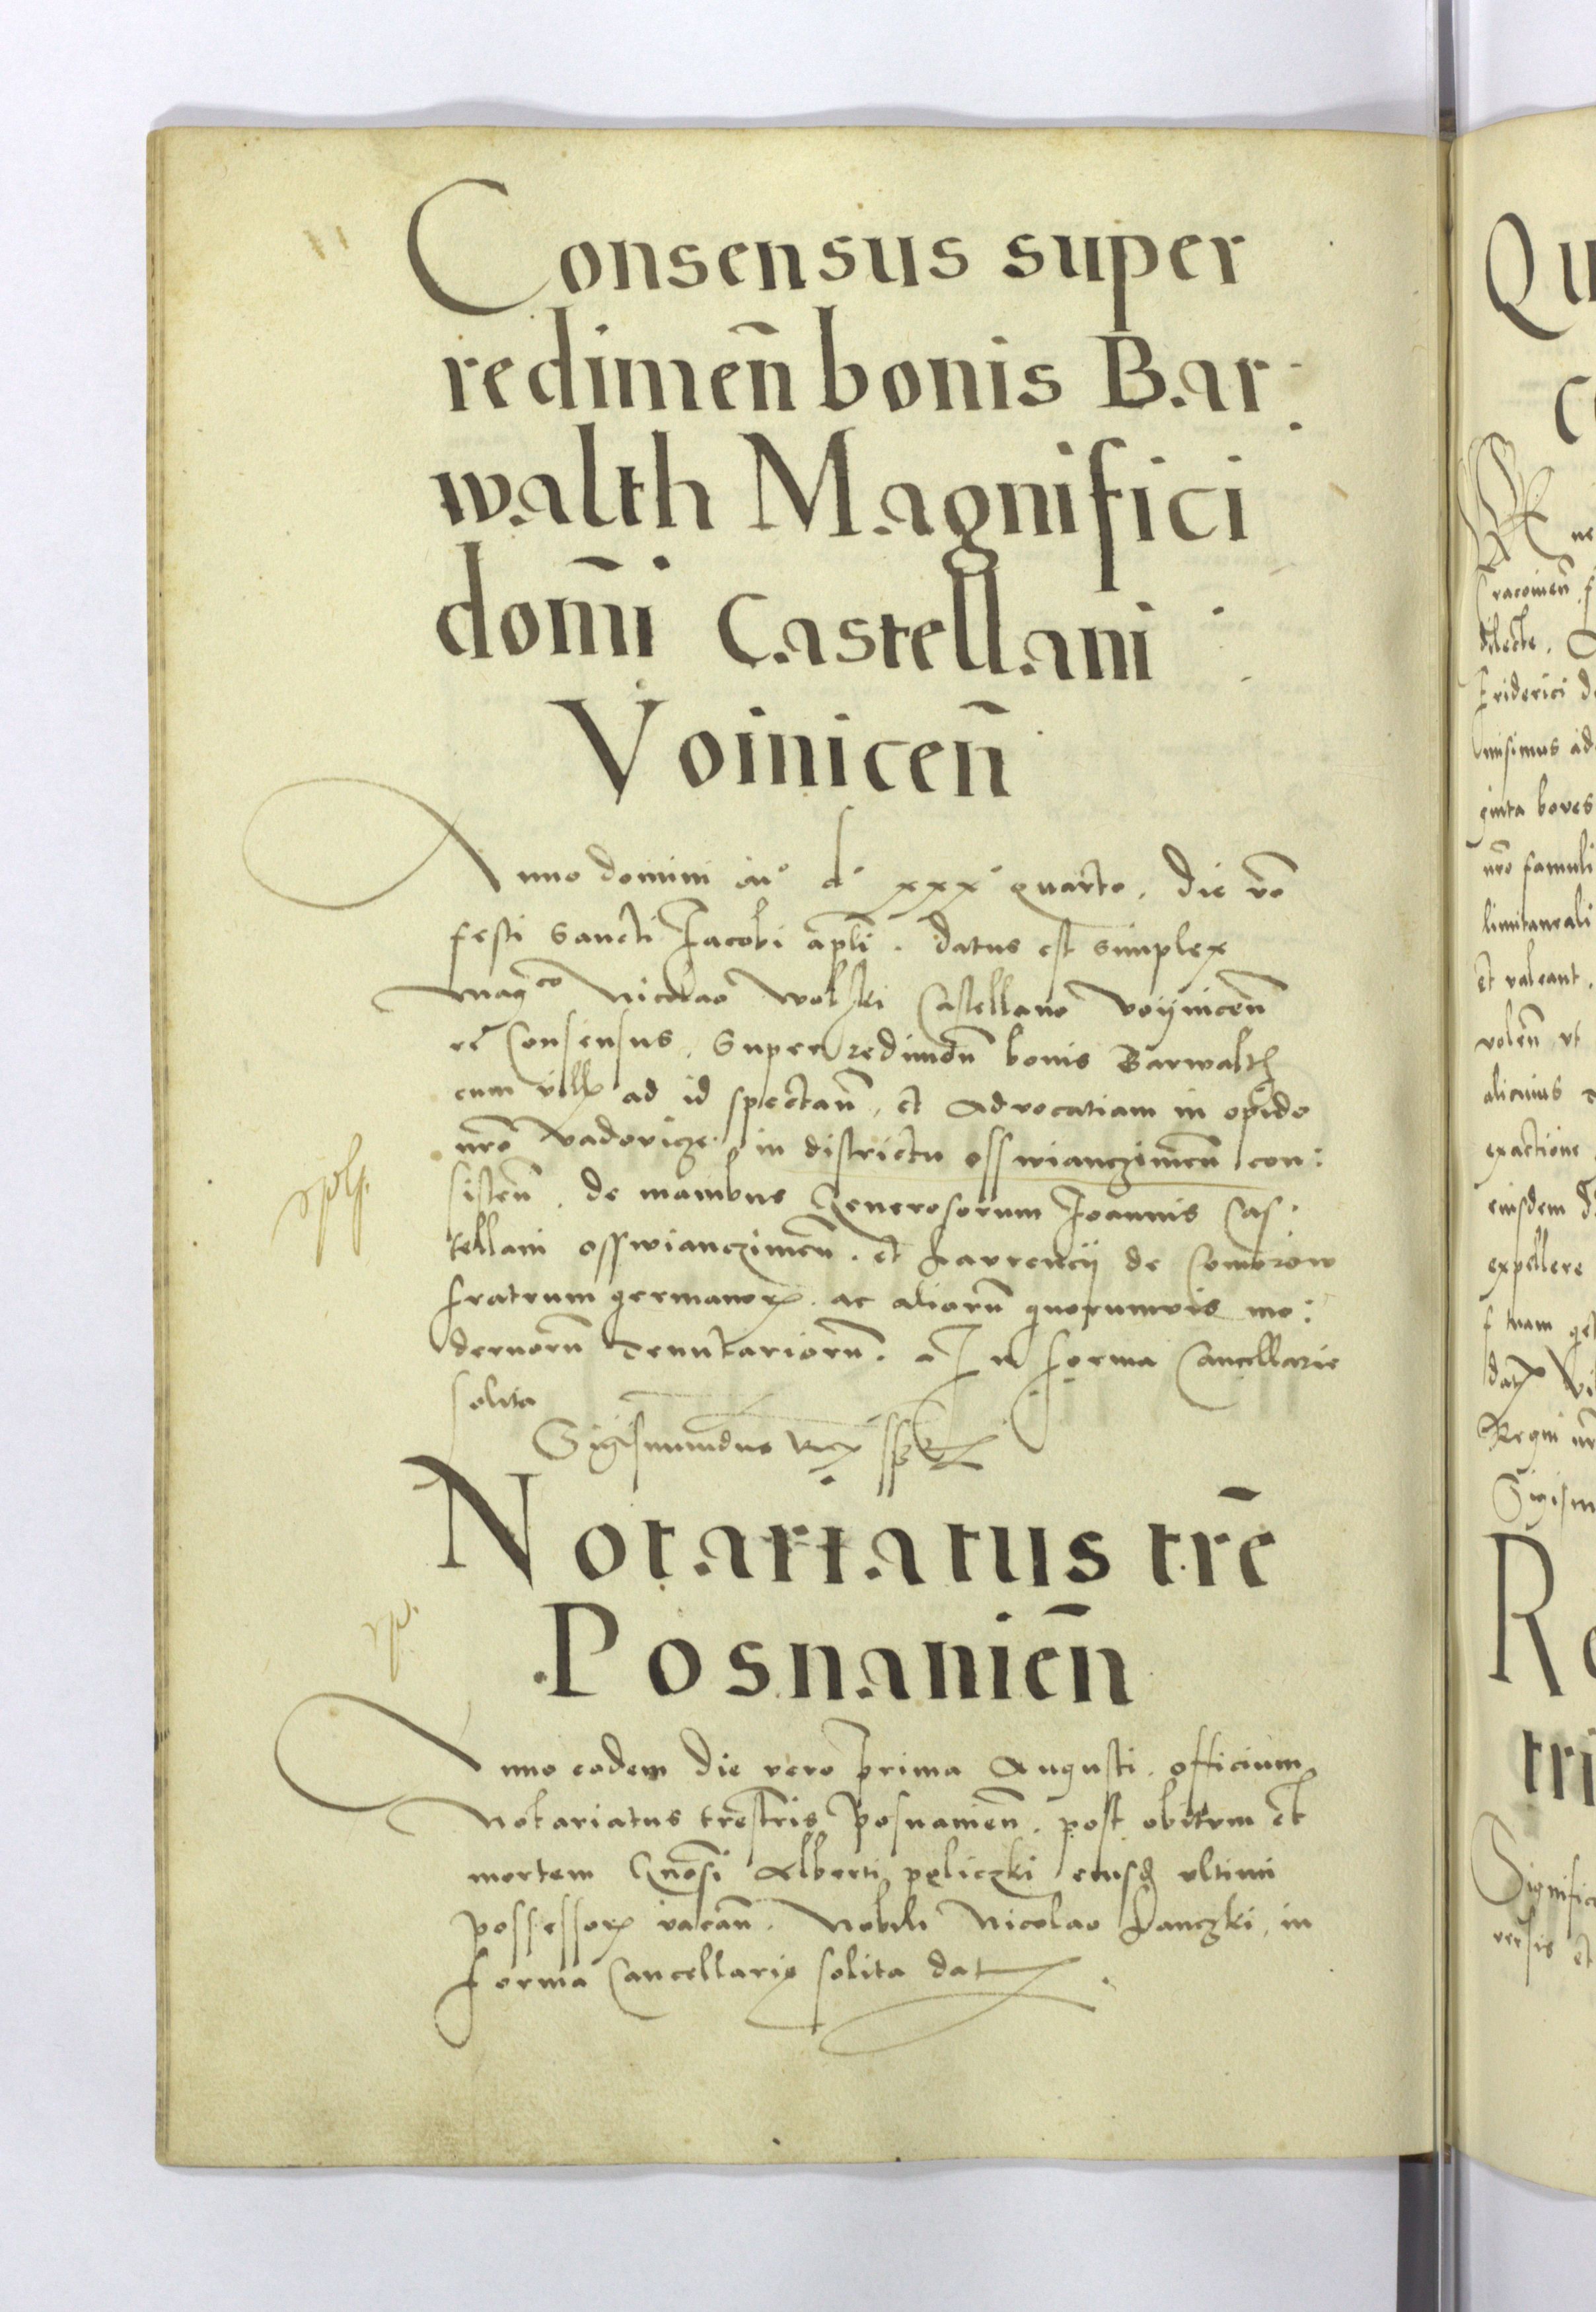 Consensus super
redimen̄ bonis Bar
walth Magnifici
domi̅ Castellani
Voinicen̄
Anno domini mo do xxxo quarto. die vo
festi Sancti Jacobi apl̄i. datus est simplex
magco Nicolao Wolski Castellano Voijnicen̄
Consensus. Super redimen̄ bonis Barwalth
cum ad id spectan̄. et Advocatiam in opido
nr̄o Vadovicze in districtu osswianczimen̄ con:
sisten̄. de manibus Generosorum Joannis Cas:
tellani osswianczimen̄. et Laurencij de Comorow
fratrum germanorꝝ. ac aliorū quorumvis mo:
dernorū Tenutariorū. In forma Cancellarie
solita
Sigismundus Rex sst
Notariatus tr̄e
Posnanien̄
Anno eodem die vero prima Augusti. officium
Notariatus tr̄estris Posnanien̄. post obitum et
mortem Gn̄osi Alberti peliczki eiusd ultimi
possessorꝭ vacan̄. Nobili Nicolao in
forma Cancellarie solita dat
Qu
Cracovien̄ f
dilecte.
Friderici d
misimus ad
ginta boves
nr̄o famuli
limitaneali
et valeant.
volen̄ ut
alicuius
exactione
eiusdem d
expellere
Regni nr̄
Sigism
R
tri
Signific
versis et